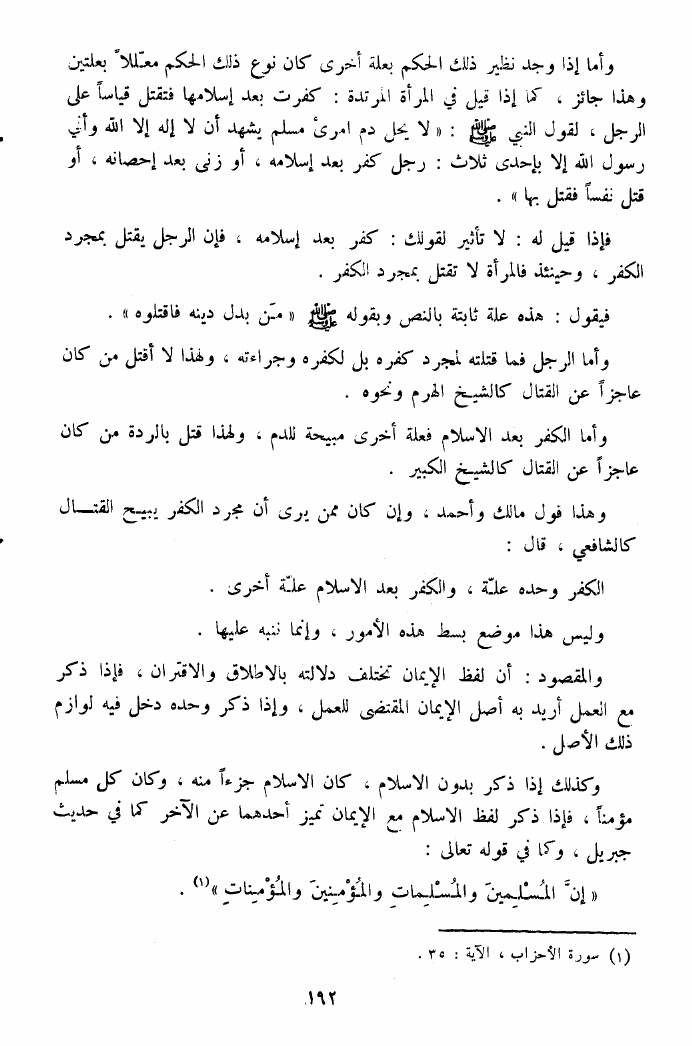 وأما إذا وجد نظير ذلك الحكم بعلة أخرى كان نوع ذلك الحكم معلّلاً بعلتين
وهذا جائز ، كما إذا قيل في المرأة المرتدة : كفرت بعد إسلامها فتقتل قياساً على
الرجل ، لقول النبي ﷺ : « لا يحل دم امرىء مسلم يشهد أن لا إله إلا الله وأني
رسول الله إلا بإحدى ثلاث : رجل كفر بعد إسلامه ، أو زنى بعد إحصانه ، أو
قتل نفساً فقتل بها » .
فإذا قيل له : لا تأثير لقولك : كفر بعد إسلامه ، فإن الرجل يقتل بمجرد
الكفر ، وحينئذ فالمرأة لا تقتل بمجرد الكفر .
فيقول : هذه علة ثابتة بالنص وبقوله ﷺ « مَن بدل دينه فاقتلوه » .
وأما الرجل فما قتلته لمجرد كفره بل لكفره وجراءته ، ولهذا لا أقتل من كان
عاجزاً عن القتال كالشيخ الهرم ونحوه .
وأما الكفر بعد الاسلام فعلة أخرى مبيحة للدم ، ولهذا قتل بالردة من كان
عاجزاً عن القتال كالشيخ الكبير .
وهذا قول مالك وأحمد ، وإن كان ممن يرى أن مجرد الكفر يبيح القتـــال
كالشافعي ، قال :
الكفر وحده علّة ، والكفر بعد الاسلام علّة أخرى .
وليس هذا موضع بسط هذه الأمور ، وإنما ننبه عليها .
والمقصود : أن لفظ الإيمان تختلف دلالته بالاطلاق والاقتران ، فإذا ذكر
مع العمل أريد به أصل الإيمان المقتضى للعمل ، وإذا ذكر وحده دخل فيه لوازم
ذلك الأصل .
وكذلك إذا ذكر بدون الاسلام ، كان الاسلام جزءاً منه ، وكان كل مسلم
مؤمناً ، فإذا ذكر لفظ الاسلام مع الإيمان تميز أحدهما عن الآخر كما في حديث
جبريل ، وكما في قوله تعالى :
« إنَّ المُسْلِمينَ والمُسْلِماتِ والمُؤْمِنينَ والمُؤْمِناتِ »(١) .
(١) سورة الأحزاب ، الآية : ٣٥ .
١٩٢